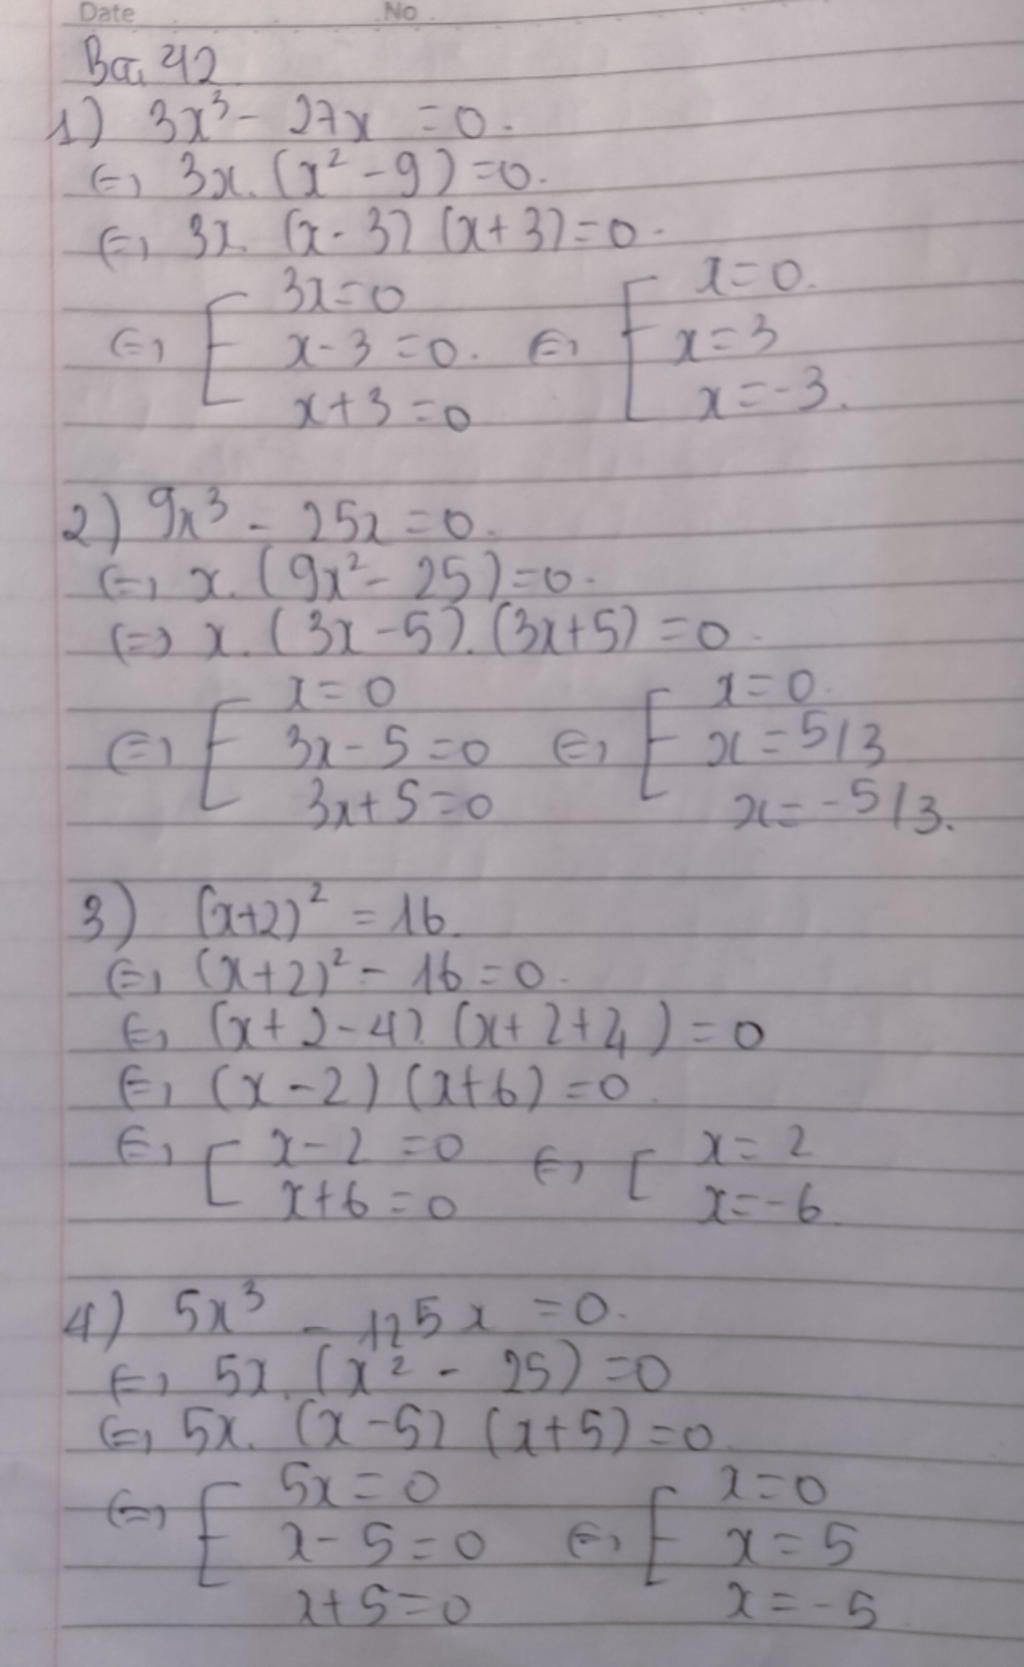 Date No
Bài 42
1) 3x³ - 27x = 0.
⇔ 3x. (x² - 9) = 0.
⇔ 3x. (x - 3) (x + 3) = 0.
⇔ [ 3x = 0 ⇔ [ x = 0.
x - 3 = 0. x = 3
x + 3 = 0 x = -3.
2) 9x³ - 25x = 0.
⇔ x. (9x² - 25) = 0.
⇔ x. (3x - 5). (3x + 5) = 0.
⇔ [ x = 0 ⇔ [ x = 0.
3x - 5 = 0 x = 5/3
3x + 5 = 0 x = -5/3.
3) (x+2)² = 16.
⇔ (x+2)² - 16 = 0.
⇔ (x + 2 - 4) (x + 2 + 4) = 0
⇔ (x - 2) (x + 6) = 0.
⇔ [ x - 2 = 0 ⇔ [ x = 2
x + 6 = 0 x = -6.
4) 5x³ - 125x = 0.
⇔ 5x. (x² - 25) = 0
⇔ 5x. (x - 5) (x + 5) = 0.
⇔ [ 5x = 0 ⇔ [ x = 0
x - 5 = 0 x = 5
x + 5 = 0 x = -5